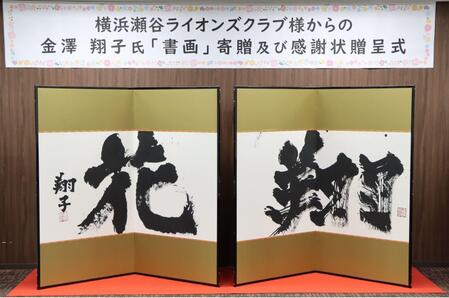 横浜瀬谷ライオンズクラブ様からの
金澤 翔子氏「書画」寄贈及び感謝状贈呈式
翔
花
翔子